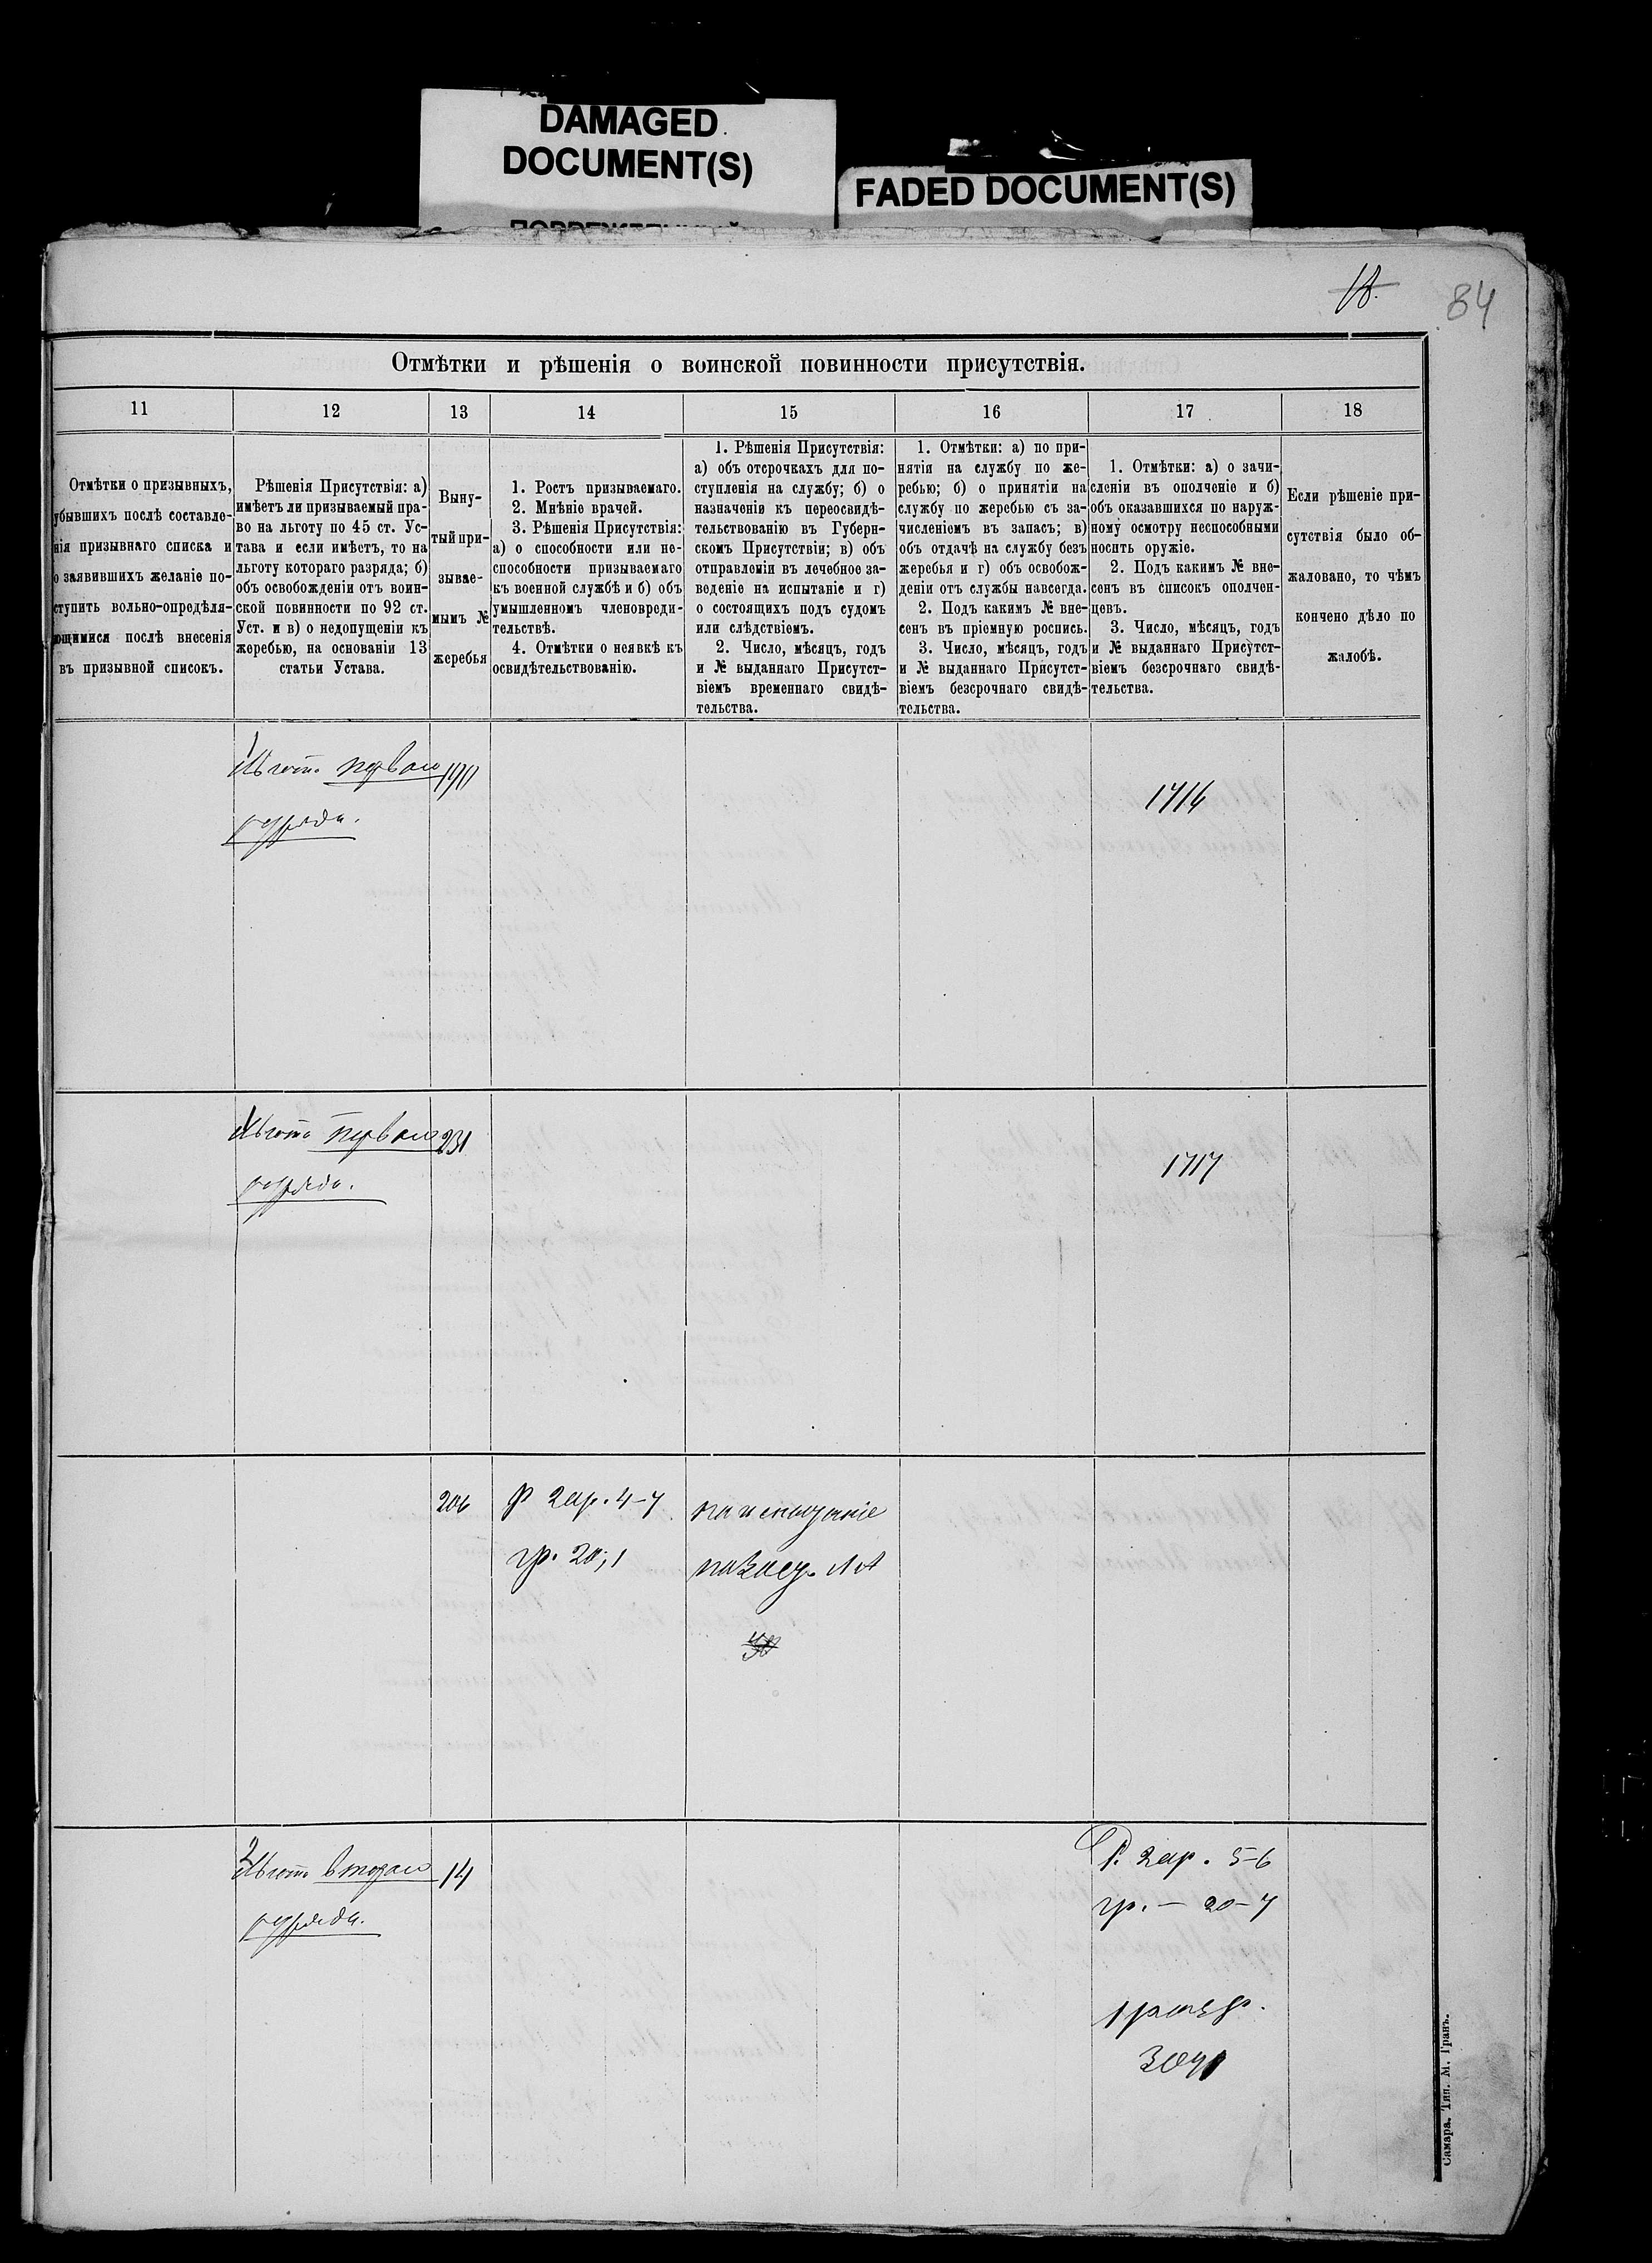 DAMAGED
DOCUMENT(S)
FADED DOCUMENT(S)
18.
84
Отмѣтки и рѣшенія о воинской повинности присутствія.
11 12 13 14 15 16 17 18
Отмѣтки о призывныхъ,
убывшихъ послѣ составле-
нія призывнаго списка и
о заявившихъ желаніе по-
ступить вольно-опредѣля-
ющимися послѣ внесенія
въ призывной списокъ.
Рѣшенія Присутствія: а)
имѣетъ ли призываемый пра-
во на льготу по 45 ст. Ус-
тава и если имѣетъ, то на
льготу котораго разряда; б)
объ освобожденіи отъ воин-
ской повинности по 92 ст.
Уст. и в) о недопущеніи къ
жеребью, на основаніи 13
статьи Устава.
Выну-
тый при-
зывае-
мымъ №
жеребья
1. Ростъ призываемаго.
2. Мнѣніе врачей.
3. Рѣшенія Присутствія:
а) о способности или не-
способности призываемаго
къ военной службѣ и б) объ
умышленномъ членовреди-
тельствѣ.
4. Отмѣтки о неявкѣ къ
освидѣтельствованію.
1. Рѣшенія Присутствія:
а) объ отсрочкахъ для по-
ступленія на службу; б) о
назначеніи къ переосвидѣ-
тельствованію въ Губерн-
скомъ Присутствіи; в) объ
отправленіи въ лечебное за-
веденіе на испытаніе и г)
о состоящихъ подъ судомъ
или слѣдствіемъ.
2. Число, мѣсяцъ, годъ
и № выданнаго Присутст-
віемъ временнаго свидѣ-
тельства.
1. Отмѣтки: а) по при-
нятія на службу по же-
ребью; б) о принятіи на
службу по жеребью съ за-
численіемъ въ запасъ; в)
объ отдачѣ на службу безъ
жеребья и г) объ освобож-
деніи отъ службы навсегда.
2. Подъ какимъ № вне-
сенъ въ пріемную роспись.
3. Число, мѣсяцъ, годъ
и № выданнаго Присутст-
віемъ безсрочнаго свидѣ-
тельства.
1. Отмѣтки: а) о зачи-
сленіи въ ополченіе и б)
объ оказавшихся по наруж-
ному осмотру неспособными
носить оружіе.
2. Подъ какимъ № вне-
сенъ въ списокъ ополчен-
цевъ.
3. Число, мѣсяцъ, годъ
и № выданнаго Присутст-
віемъ безсрочнаго свидѣ-
тельства.
Если рѣшеніе при-
сутствія было об-
жаловано, то чѣмъ
кончено дѣло по
жалобѣ.
1
Льгота перваго
разряда.
1716
1
Льгота перваго 231
разряда.
1717
206 Р 2 ар. 4-7 на испытаніе
гр. 20;1
2
Льгота втораго 14
разряда.
Р. 2 ар. 5-6
гр. - 20-7
Самара. Тип. М. Гранъ.